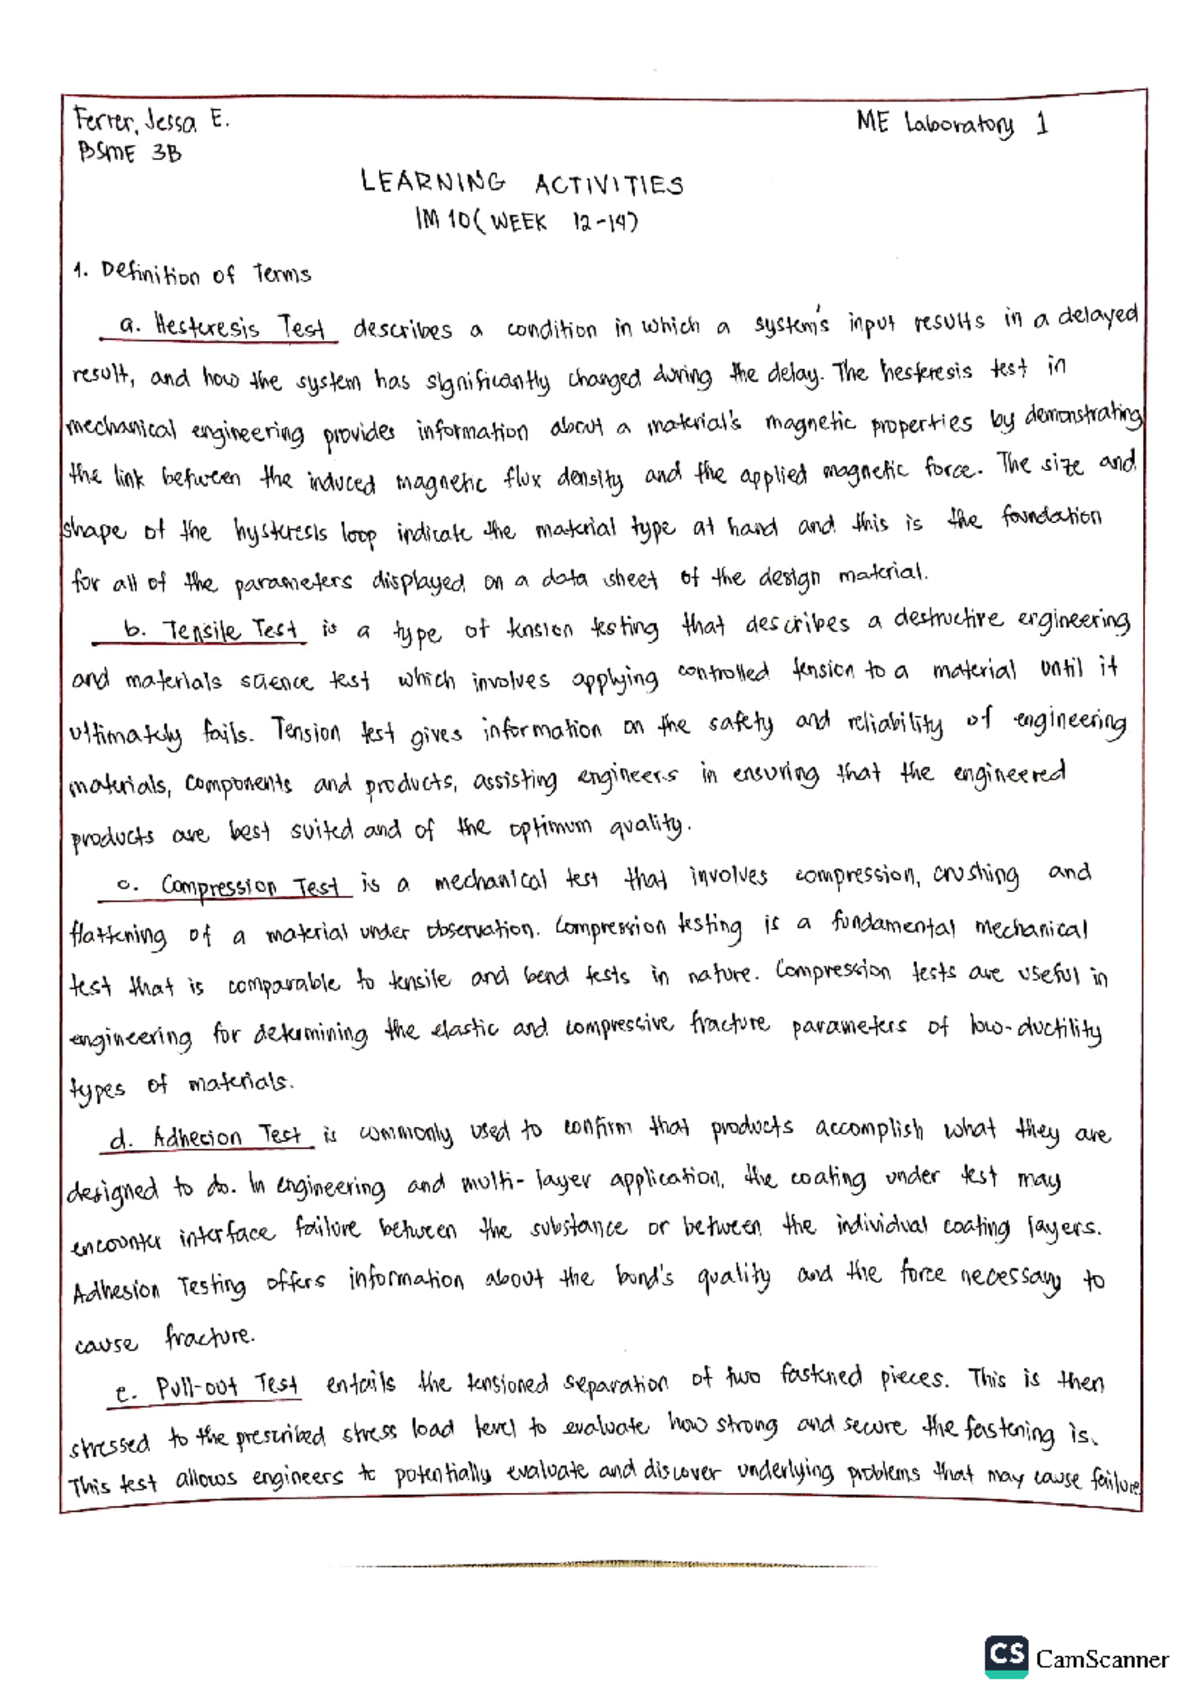 Ferrer, Jessa E.
ME Laboratory 1
BSME 3B
LEARNING ACTIVITIES
IM 10 (WEEK 12-14)
1. Definition of Terms
a. Hesteresis Test describes a condition in which a system's input results in a delayed
result, and how the system has significantly changed during the delay. The hesteresis test in
mechanical engineering provides information about a material's magnetic properties by demonstrating
the link between the induced magnetic flux density and the applied magnetic force. The size and
shape of the hysteresis loop indicate the material type at hand and this is the foundation
for all of the parameters displayed on a data sheet of the design material.
b. Tensile Test is a type of tension testing that describes a destructive engineering
and materials science test which involves applying controlled tension to a material until it
ultimately fails. Tension test gives information on the safety and reliability of engineering
materials, components and products, assisting engineers in ensuring that the engineered
products are best suited and of the optimum quality.
c. Compression Test is a mechanical test that involves compression, crushing and
flattening of a material under observation. Compression testing is a fundamental mechanical
test that is comparable to tensile and bend tests in nature. Compression tests are useful in
engineering for determining the elastic and compressive fracture parameters of low-ductility
types of materials.
d. Adhecion Test is commonly used to confirm that products accomplish what they are
designed to do. In engineering and multi-layer application, the coating under test may
encounter interface failure between the substance or between the individual coating layers.
Adhesion Testing offers information about the bond's quality and the force necessary to
cause fracture.
e. Pull-out Test entails the tensioned separation of two fastened pieces. This is then
stressed to the prescribed stress load level to evaluate how strong and secure the fastening is.
This test allows engineers to potentially evaluate and discover underlying problems that may cause failure.
CS CamScanner